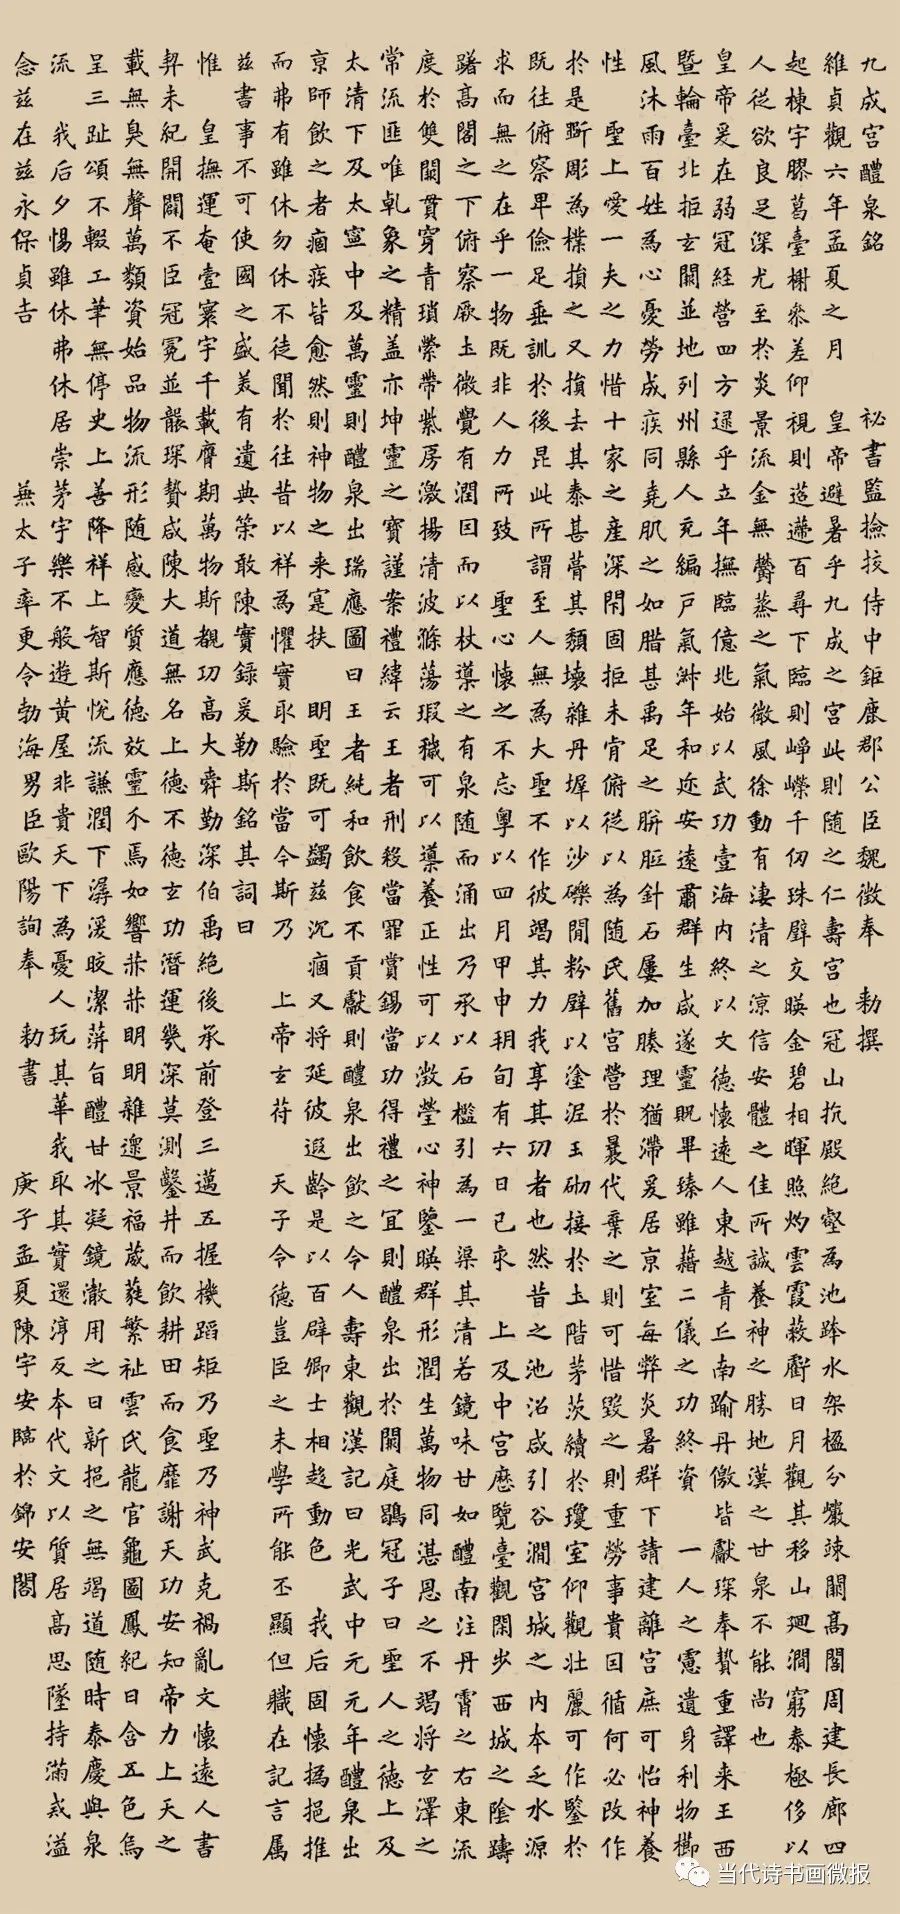 九成宮醴泉銘 祕書監撿挍侍中鉅鹿郡公臣魏徵奉 勑撰
維貞觀六年孟夏之月 皇帝避暑乎九成之宮此則随之仁壽宮也冠山抗殿絶壑為池跨水架楹分巖竦闕高閣周建長廊四
起棟宇膠葛臺榭參差仰視則迢遰百尋下臨則崢嶸千仞珠璧交暎金碧相暉照灼雲霞蔽虧日月觀其移山廻澗窮泰極侈以
人從欲良足深尤至於炎景流金無欝蒸之氣微風徐動有凄清之涼信安體之佳所誠養神之勝地漢之甘泉不能尚也
皇帝爰在弱冠經營四方逮乎立年撫臨億兆始以武功壹海内終以文德懷遠人東越青丘南踰丹儌皆獻琛奉贄重譯来王西
暨輪臺北拒玄闕並地列州縣人充編戶氣淑年和迩安遠肅群生咸遂靈貺畢臻雖藉二儀之功終資 一人之慮遺身利物櫛
風沐雨百姓為心憂勞成疾同堯肌之如腊甚禹足之胼胝針石屢加腠理猶滯爰居京室每弊炎暑群下請建離宮庶可怡神養
性 聖上愛一夫之力惜十家之產深閇固拒未肯俯從以為随氏舊宮營於曩代棄之則可惜毀之則重勞事貴因循何必改作
於是斲彫為樸損之又損去其泰甚葺其頹壞雜丹墀以沙礫間粉壁以塗泥玉砌接於土階茅茨續於瓊室仰觀壯麗可作鑒於
既往俯察卑儉足垂訓於後昆此所謂至人無為大聖不作彼竭其力我享其功者也然昔之池沼咸引谷澗宮城之内本乏水源
求而無之在乎一物既非人力所致 聖心懷之不忘粤以四月甲申朔旬有六日己亥 上及中宮歷覽臺觀閑步西城之陰躊
躇高閣之下俯察厥土微覺有潤因而以杖導之有泉随而涌出乃承以石檻引為一渠其清若鏡味甘如醴南注丹霄之右東流
度於雙闕貫穿青瑣縈帶紫房激揚清波滌蕩瑕穢可以導養正性可以澂瑩心神鑒暎群形潤生萬物同湛恩之不竭将玄澤之
常流匪唯乹象之精盖亦坤靈之寶謹案禮緯云王者刑殺當罪賞錫當功得禮之宜則醴泉出於闕庭鶡冠子曰聖人之德上及
太清下及太寧中及萬靈則醴泉出瑞應圖曰王者純和飲食不貢獻則醴泉出飲之令人壽東觀漢記曰光武中元元年醴泉出
京師飲之者痼疾皆愈然則神物之来寔扶 明聖既可蠲兹沉痼又将延彼遐齡是以百辟卿士相趍動色 我后固懷撝挹推
而弗有雖休勿休不徒聞於往昔以祥為懼實取驗於當今斯乃 上帝玄符 天子令德豈臣之末學所能丕顯但職在記言属
兹書事不可使國之盛美有遺典策敢陳實録爰勒斯銘其詞曰
惟 皇撫運奄壹寰宇千載膺期萬物斯覩功高大舜勤深伯禹絶後承前登三邁五握機蹈矩乃聖乃神武克禍亂文懷遠人書
契未紀開闢不臣冠冕並襲琛贄咸陳大道無名上德不德玄功潛運幾深莫測鑿井而飲耕田而食靡謝天功安知帝力上天之
載無臭無聲萬類資始品物流形随感變質應德效靈介焉如響赫赫明明雜遝景福葳蕤繁祉雲氏龍官龜圖鳳紀日含五色烏
呈三趾頌不輟工筆無停史上善降祥上智斯悅流謙潤下潺湲皎潔蓱旨醴甘冰凝鏡澈用之日新挹之無竭道随時泰慶與泉
流 我后夕惕雖休弗休居崇茅宇樂不般遊黃屋非貴天下為憂人玩其華我取其實還淳反本代文以質居高思墜持滿戒溢
念兹在兹永保貞吉 兼太子率更令勃海男臣歐陽詢奉 勑書 庚子孟夏陳宇安臨於錦安閣
当代诗书画微报